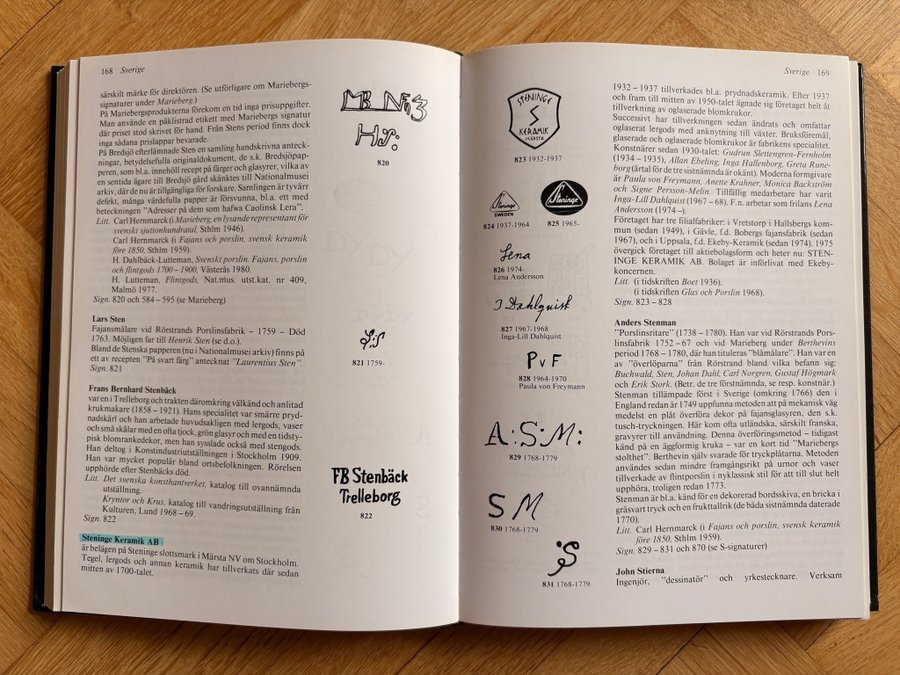 168 Sverige
särskilt märke för direktören. (Se utförligare om Mariebergs-
signaturer under Marieberg.)
På Mariebergsprodukterna förekom en tid inga prisuppgifter.
Man använde en påklistrad etikett med Mariebergs signatur
där priset stod skrivet för hand. Från Stens period finns dock
inga sådana prislappar bevarade.
På Bredsjö efterlämnade Sten en samling handskrivna anteck-
ningar, betydelsefulla originaldokument, de s.k. Bredsjöpap-
peren, som bl.a. innehöll recept på färger och glasyrer, vilka av
en sentida ägare till Bredsjö gård skänktes till Nationalmusei
arkiv, där de nu är tillgängliga för forskare. Samlingen är tyvärr
defekt, många värdefulla papper är försvunna, bl.a. ett med
beteckningen "Adresser på dem som hafwa Caolinsk Lera".
Litt. Carl Hernmarck (i Marieberg, en lysande representant för
svenskt sjuttonhundratal, Sthlm 1946).
Carl Hernmarck (i Fajans och porslin, svensk keramik
före 1850, Sthlm 1959).
H. Dahlbäck-Lutteman, Svenskt porslin. Fajans, porslin
och flintgods 1700 – 1900, Västerås 1980.
H. Lutteman, Flintgods, Nat.mus. utst.kat. nr 409,
Malmö 1977.
Sign. 820 och 584 – 595 (se Marieberg)
Lars Sten
Fajansmålare vid Rörstrands Porslinsfabrik – 1759 – Död
1763. Möjligen far till Henrik Sten (se d.o.).
Bland de Stenska papperen (nu i Nationalmusei arkiv) finns på
ett av recepten "På svart färg" antecknat "Laurentius Sten".
Sign. 821
Frans Bernhard Stenbäck
var en i Trelleborg och trakten däromkring välkänd och anlitad
krukmakare (1858 – 1921). Hans specialitet var smärre pryd-
nadskärl och han arbetade huvudsakligen med lergods, vaser
och små skålar med en ofta tjock, grön glasyr och med en tidsty-
pisk blomrankedekor, men han sysslade också med stengods.
Han deltog i Konstindustriutställningen i Stockholm 1909.
Han var mycket populär bland ortsbefolkningen. Rörelsen
upphörde efter Stenbäcks död.
Litt. Det svenska konsthantverket, katalog till ovannämnda
utställning.
Kryntor och Krus, katalog till vandringsutställning från
Kulturen, Lund 1968 – 69.
Sign. 822
Steninge Keramik AB
är belägen på Steninge slottsmark i Märsta NV om Stockholm.
Tegel, lergods och annan keramik har tillverkats där sedan
mitten av 1700-talet.
820
821 1759-
FB Stenbäck
Trelleborg
822
STENINGE
S
KERAMIK
MÄRSTA
823 1932-1937
Steninge
SWEDEN
824 1937-1964
Steninge
825 1965-
Lena
826 1974-
Lena Andersson
I Dahlquist
827 1967-1968
Inga-Lill Dahlquist
P v F
828 1964-1970
Paula von Freymann
A:S:M:
829 1768-1779
S M
830 1768-1779
831 1768-1779
Sverige 169
1932 – 1937 tillverkades bl.a. prydnadskeramik. Efter 1937
och fram till mitten av 1950-talet ägnade sig företaget helt åt
tillverkning av oglaserade blomkrukor.
Successivt har tillverkningen sedan ändrats och omfattar
oglaserat lergods med anknytning till växter. Bruksföremål,
glaserade och oglaserade blomkrukor är fabrikens specialitet.
Konstnärer sedan 1930-talet: Gudrun Slettengren-Fernholm
(1934 – 1935), Allan Ebeling, Inga Hallenborg, Greta Rune-
borg (årtal för de tre sistnämnda är okänt). Moderna formgivare
är Paula von Freymann, Anette Krahner, Monica Backström
och Signe Persson-Melin. Tillfällig medarbetare har varit
Inga-Lill Dahlquist (1967 – 68). F.n. arbetar som frilans Lena
Andersson (1974 –).
Företaget har tre filialfabriker: i Vretstorp i Hallsbergs kom-
mun (sedan 1949), i Gävle, f.d. Bobergs fajansfabrik (sedan
1967), och i Uppsala, f.d. Ekeby-Keramik (sedan 1974). 1975
övergick företaget till aktiebolagsform och heter nu: STEN-
INGE KERAMIK AB. Bolaget är införlivat med Ekeby-
koncernen.
Litt. (i tidskriften Boet 1936).
(i tidskriften Glas och Porslin 1968).
Sign. 823 – 828
Anders Stenman
"Porslinsritare" (1738 – 1780). Han var vid Rörstrands Pors-
linsfabrik 1752 – 67 och vid Marieberg under Berthevins
period 1768 – 1780, där han tituleras "blåmålare". Han var en
av "överlöparna" från Rörstrand bland vilka befann sig:
Buchwald, Sten, Johan Dahl, Carl Norgren, Gustaf Högmark
och Erik Stork. (Betr. de tre förstnämnda, se resp. konstnär.)
Stenman tillämpade först i Sverige (omkring 1766) den i
England redan år 1749 uppfunna metoden att på mekanisk väg
medelst en plåt överföra dekor på fajansglasyren, den s.k.
tusch-tryckningen. Här kom ofta utländska, särskilt franska,
gravyrer till användning. Denna överföringsmetod – tidigast
känd på en äggformig kruka – var en kort tid "Mariebergs
stolthet". Berthevin själv svarade för tryckplåtarna. Metoden
användes sedan mindre framgångsrikt på urnor och vaser
tillverkade av flintporslin i nyklassisk stil för att till slut helt
upphöra, troligen redan 1773.
Stenman är bl.a. känd för en dekorerad bordsskiva, en bricka i
gråsvart tryck och en frukttallrik (de båda sistnämnda daterade
1770).
Litt. Carl Hernmarck (i Fajans och porslin, svensk keramik
före 1850, Sthlm 1959).
Sign. 829 – 831 och 870 (se S-signaturer)
John Stierna
Ingenjör, "dessinatör" och yrkestecknare. Verksam